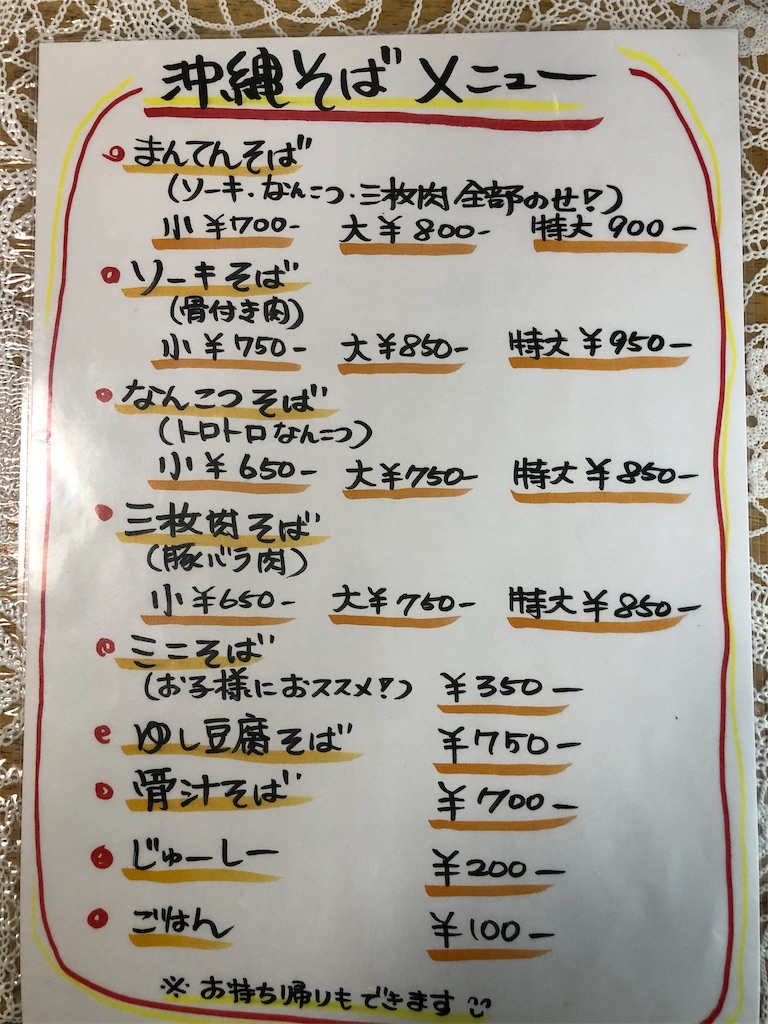 沖縄そば メニュー
まんてんそば
(ソーキ・なんこつ・三枚肉 全部のせ!)
小 ¥700- 大 ¥800- 特大 900-
ソーキそば
(骨付き肉)
小 ¥750- 大 ¥850- 特大 ¥950-
なんこつそば
(トロトロなんこつ)
小 ¥650- 大 ¥750- 特大 ¥850-
三枚肉そば
(豚バラ肉)
小 ¥650- 大 ¥750- 特大 ¥850-
ミニそば
(お子様におススメ!) ¥350-
ゆし豆腐そば ¥750-
骨汁そば ¥700-
じゅーしー ¥200-
ごはん ¥100-
※ お持ち帰りもできます